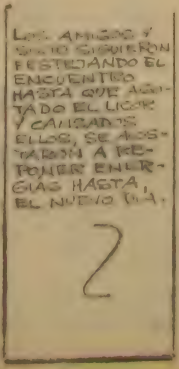 LOS AMIGOS Y
SOCIO SIGUIERON
FESTEJANDO EL
ENCUENTRO
HASTA QUE AGO-
TADO EL LICOR
Y CANSADOS
ELLOS, SE ACOS-
TARON A RE-
PONER ENER-
GIAS HASTA,
EL NUEVO DIA.
2